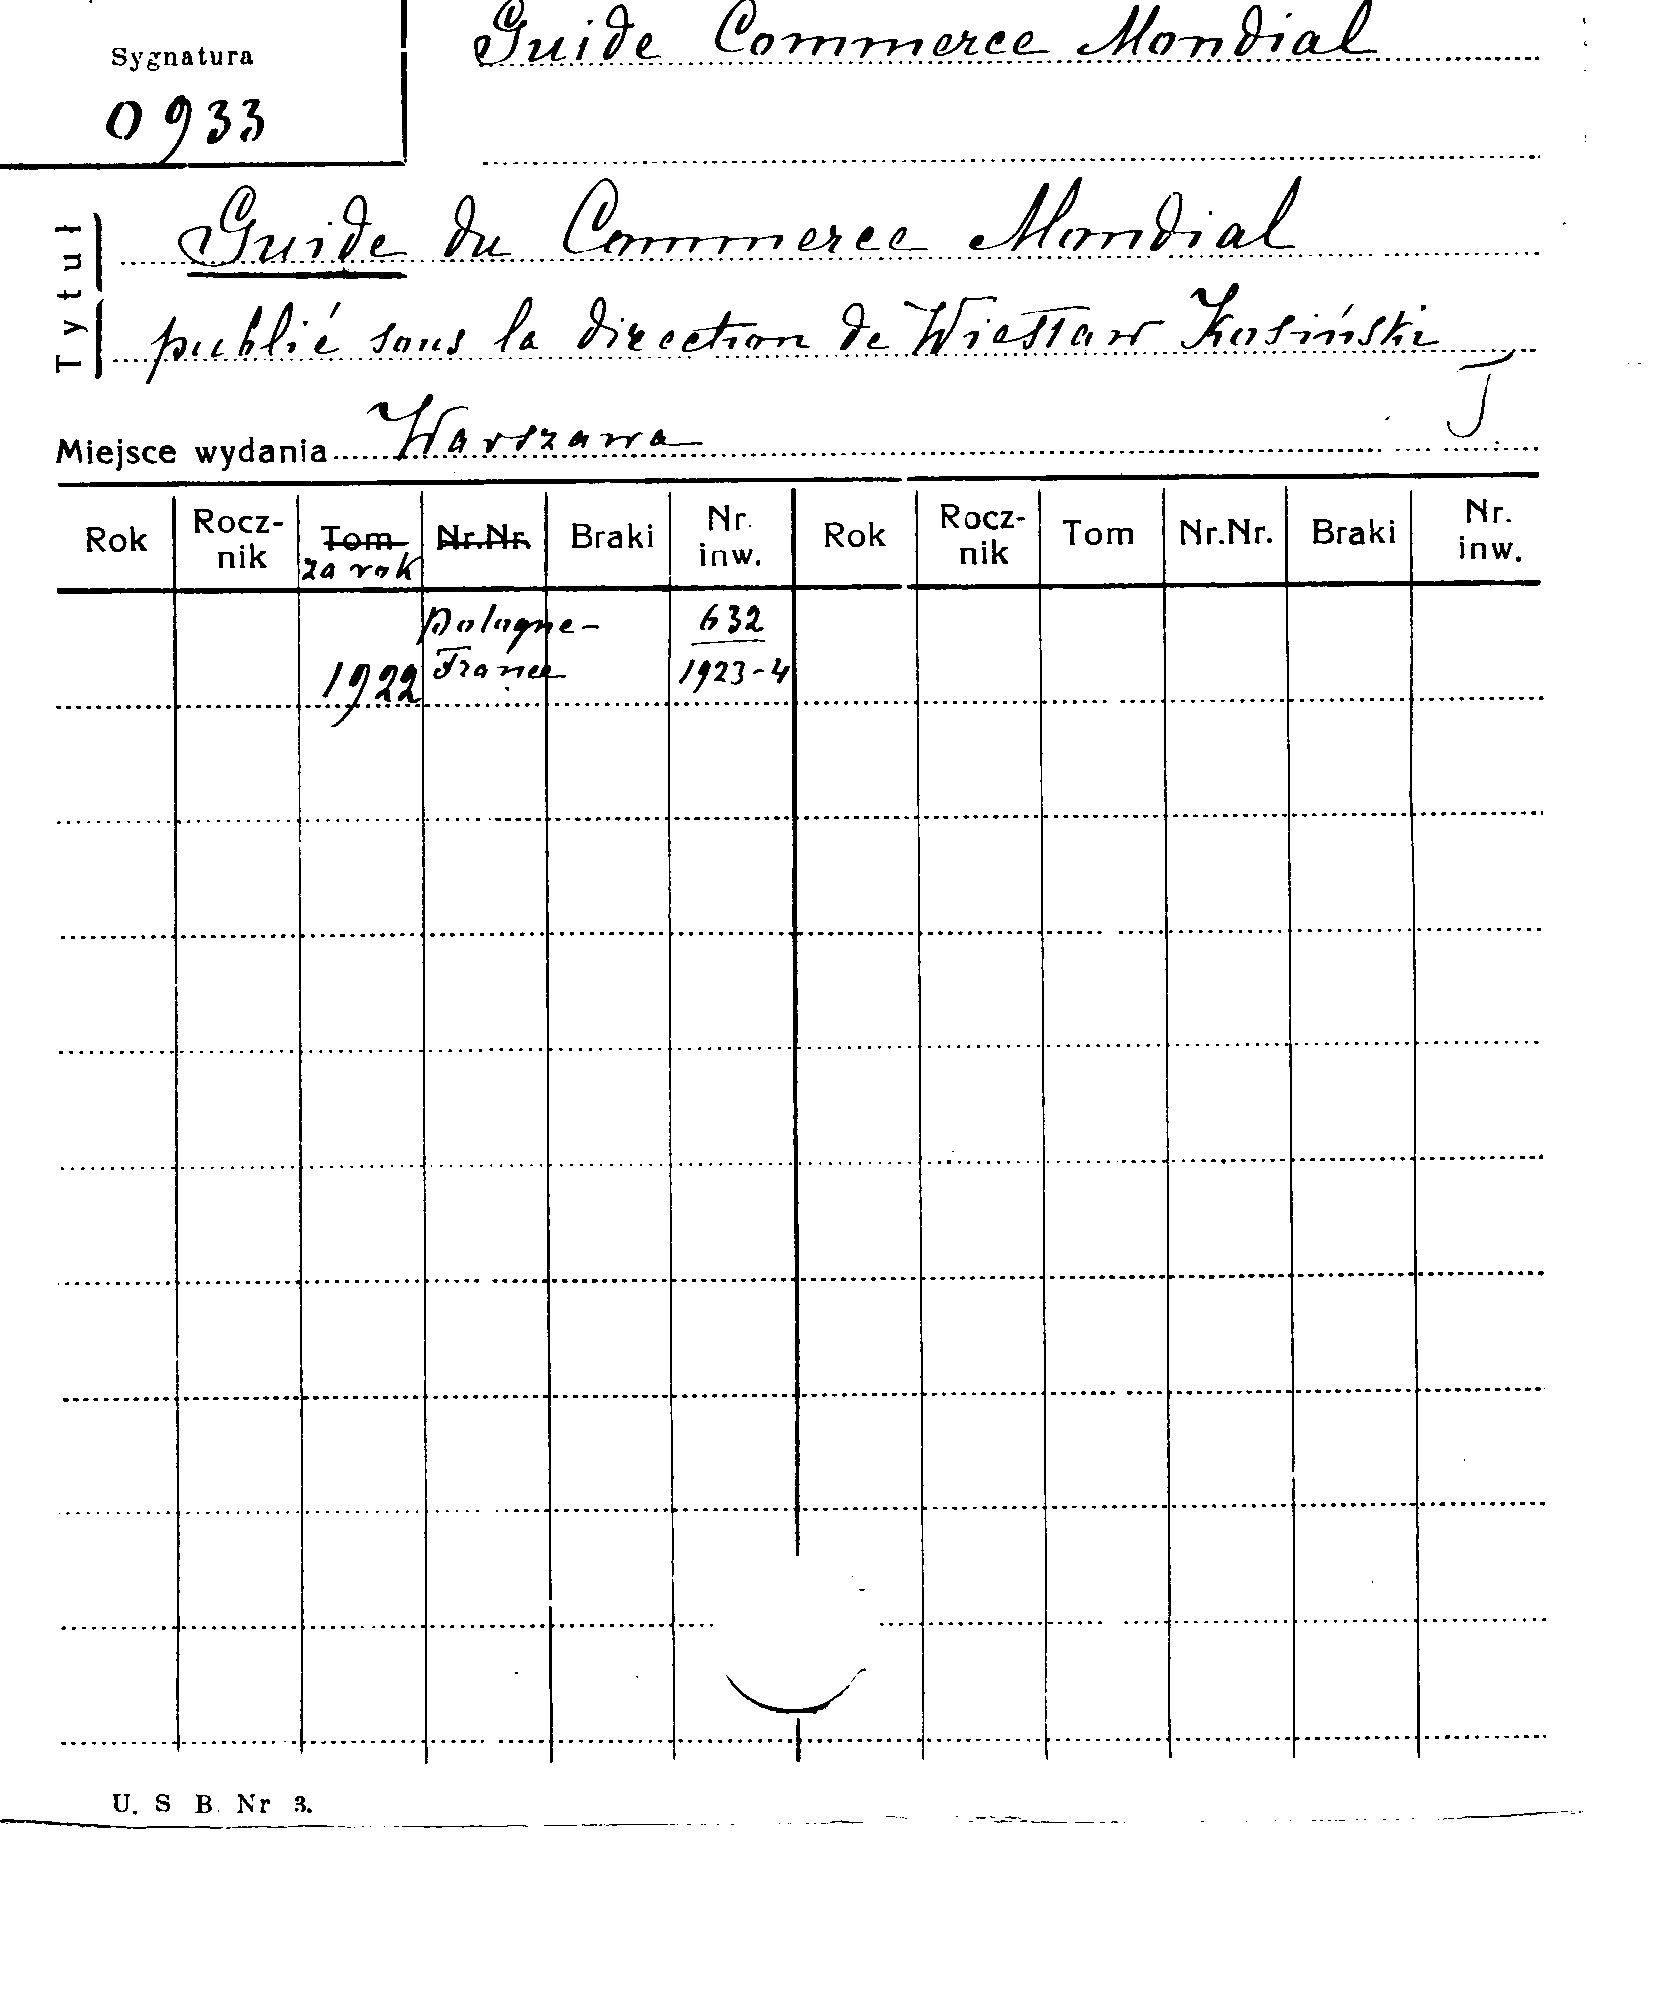 Guide Commerce Mondial
Sygnatura
0933
Tytuł
Guide du Commerce Mondial
publié sous la direction de Wiesław Kosiński
J
Miejsce wydania Warszawa
Rok Rocz-nik Tom za rok Nr.Nr. Braki Nr. inw. Rok Rocz-nik Tom Nr.Nr. Braki Nr. inw.
Pologne- 632
1922 France 1923-4
U. S B. Nr 3.